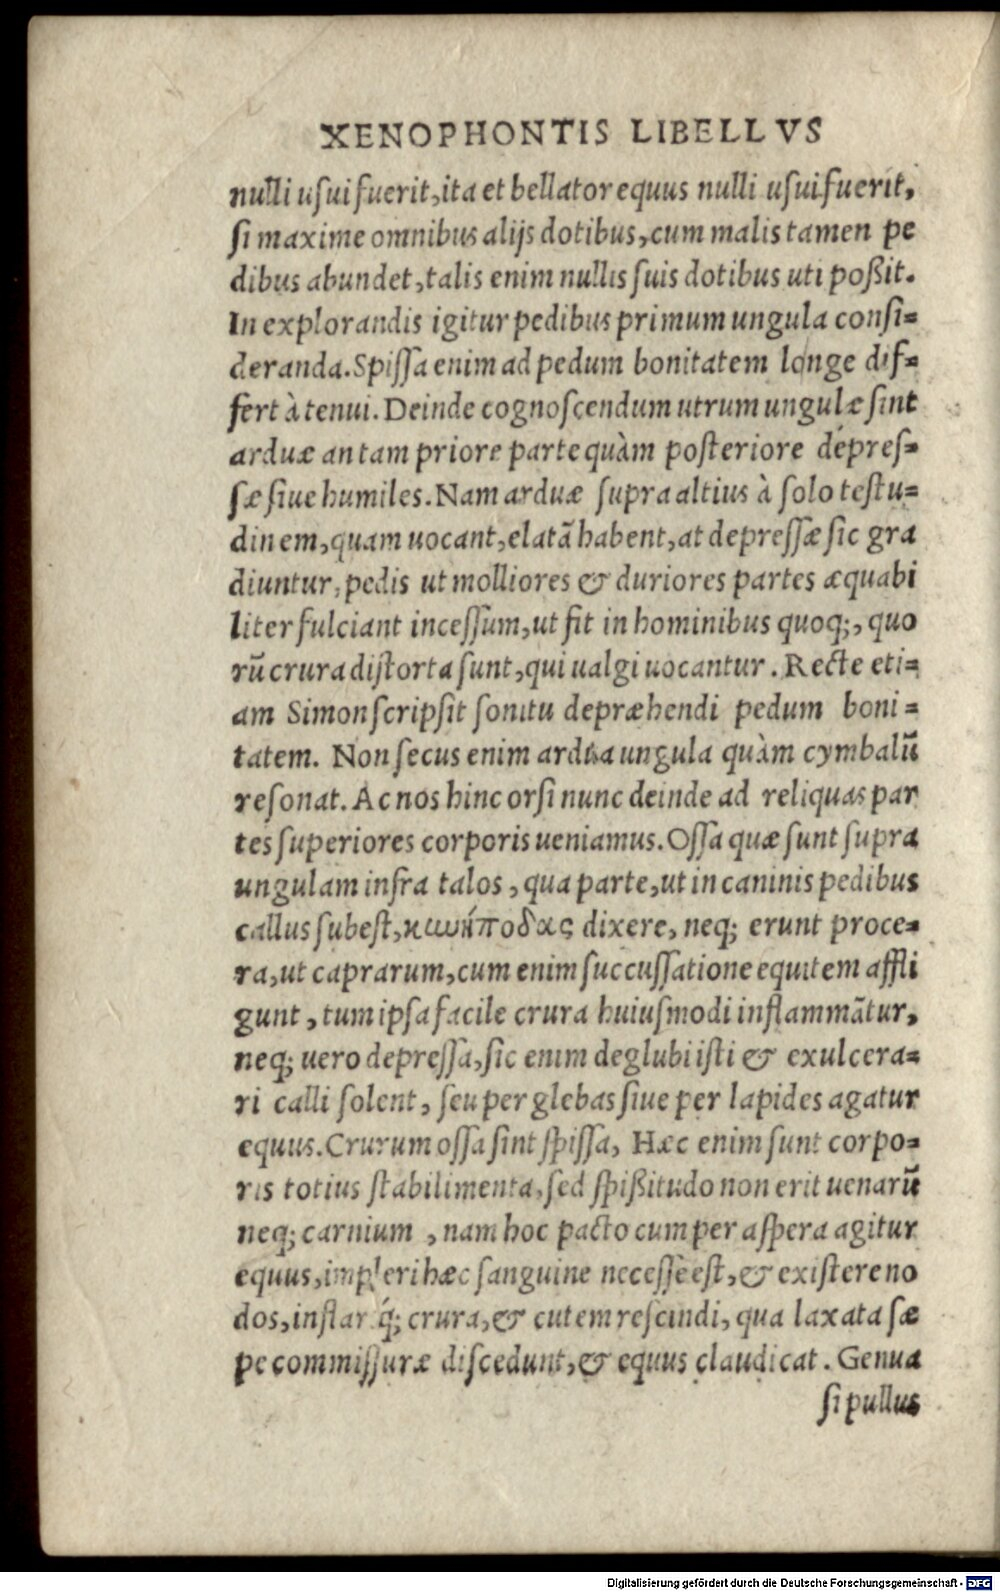 XENOPHONTIS LIBELLVS
nulli uſui fuerit, ita et bellator equus nulli uſui fuerit,
ſi maxime omnibus alijs dotibus, cum malis tamen pe
dibus abundet, talis enim nullis ſuis dotibus uti poßit.
In explorandis igitur pedibus primum ungula conſi=
deranda. Spiſſa enim ad pedum bonitatem longe dif=
fert à tenui. Deinde cognoſcendum utrum ungulæ ſint
arduæ an tam priore parte quàm poſteriore dépreſ=
ſæ ſiue humiles. Nam arduæ ſupra altius à ſolo teſtu=
dinem, quam uocant, elatã habent, at depreſſæ ſic gra
diuntur, pedis ut molliores & duriores partes æquabi
liter fulciant inceſſum, ut fit in hominibus quoq;, quo
rũ crura diſtorta ſunt, qui ualgi uocantur. Recte eti=
am Simon ſcripſit ſonitu depræhendi pedum boni=
tatem. Non ſecus enim ardua ungula quàm cymbalũ
reſonat. Ac nos hinc orſi nunc deinde ad reliquas par
tes ſuperiores corporis ueniamus. Oſſa quæ ſunt ſupra
ungulam infra talos, qua parte, ut in caninis pedibus
callus ſubeſt, κωήποδας dixere, neq; erunt proce=
ra, ut caprarum, cum enim ſuccuſſatione equitem affli
gunt, tum ipſa facile crura huiuſmodi inflammãtur,
neq; uero depreſſa, ſic enim deglubi iſti & exulcera=
ri calli ſolent, ſeu per glebas ſiue per lapides agatur
equus. Crurum oſſa ſint ſpiſſa, Hæc enim ſunt corpo=
ris totius ſtabilimenta, ſed ſpißitudo non erit uenarũ
neq; carnium, nam hoc pacto cum per aſpera agitur
equus, impleri hæc ſanguine neceſſe eſt, & exiſtere no
dos, inflar q́; crura, & cutem reſcindi, qua laxata ſæ
pe commiſſuræ diſcedunt, & equus claudicat. Genua
ſi pullus
Digitalisierung gefördert durch die Deutsche Forschungsgemeinschaft - DFG